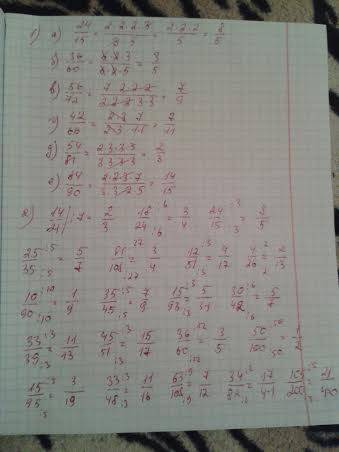 1) а) 24/15 = 2·2·2·3/3·5 = 2·2·2/5 = 8/5
б) 36/60 = 6·2·3/6·2·5 = 3/5
в) 56/72 = 7·2·2·2/2·2·2·3·3 = 7/9
г) 42/66 = 2·3·7/2·3·11 = 7/11
д) 54/81 = 2·3·3·3/3·3·3·3 = 2/3
е) 84/90 = 2·2·3·7/3·3·2·5 = 14/15
2) 14/21 :7 = 2/3 18/24 :6 = 3/4 24/15 :3 = 8/5
25/35 :5 = 5/7 81/108 :27 = 3/4 12/51 :3 = 4/17 4/26 :2 = 2/13
10/90 :10 = 1/9 35/45 :5 = 7/9 15/93 :3 = 5/31 30/42 :6 = 5/7
33/39 :3 = 11/13 45/51 :3 = 15/17 36/60 :12 = 3/5 50/100 :50 = 1/2
15/95 :5 = 3/19 33/48 :3 = 11/16 63/108 :9 = 7/12 34/82 = 17/41 105/200 :5 = 21/40